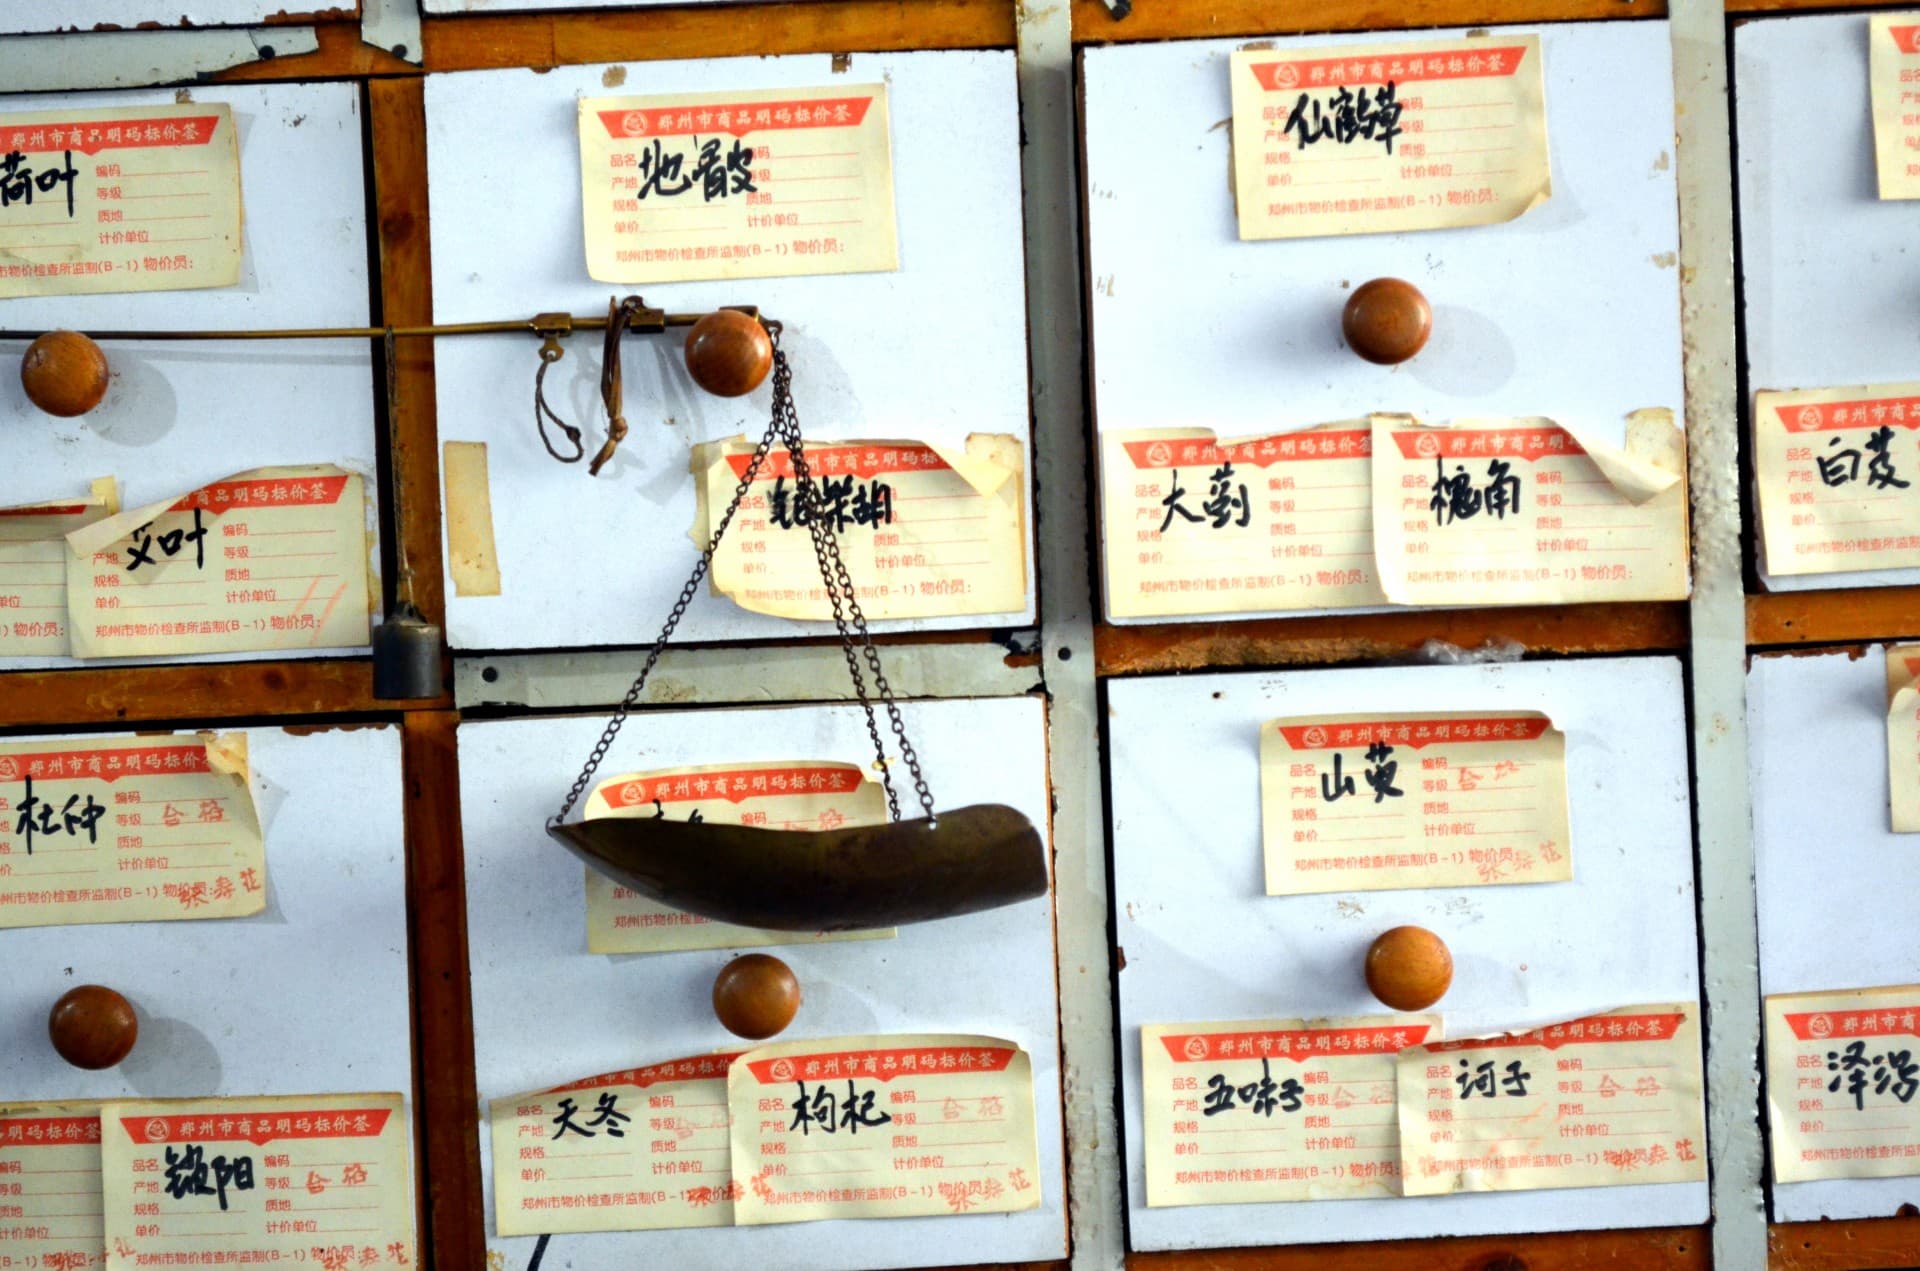 郑州市商品明码标价签
荷叶
编码
等级
质地
计价单位
市物价检查所监制(B-1) 物价员:
郑州市商品明码标价签
品名 地骨皮 编码
产地
规格 质地
单价 计价单位
郑州市物价检查所监制(B-1) 物价员:
郑州市商品明码标价签
品名 仙鹤草 编码
产地 等级
规格 质地
单价 计价单位
郑州市物价检查所监制(B-1) 物价员:
市商品明码标价签
艾叶 编码
产地 等级
规格 质地
单价 计价单位
郑州市物价检查所监制(B-1) 物价员:
单位
物价员:
州市商品明码标
品名 柴胡
产地
规格 质地
单价 计价单位
郑州市物价检查所监制(B-1) 物价员:
郑州市商品明码标价
品名 大蓟 编码
产地 等级
规格 质地
单价 计价单位
郑州市物价检查所监制(B-1) 物价员:
郑州市商品明
品名 槐角 编码
产地 等级
规格 质地
单价 计价单位
郑州市物价检查所监制(B-1) 物价员:
郑州市商
品名 白芨
产地
规格
单价
郑州市物价检查所监
郑州市商品明码标价
杜仲 编码
等级 合格
质地
计价单位
郑州市物价检查所监制(B-1) 物价员:
郑州市商品明码标价签
编码
单价
郑州市物价检查
郑州市商品明码标价签
品名 山萸 编码
产地 等级 合格
规格 质地
单价 计价单位
郑州市物价检查所监制(B-1) 物价员:
码标价签
编码
等级
质地
计价单位
郑州市商品明码标价签
品名 锁阳 编码
产地 等级 合格
规格 质地
单价 计价单位
郑州市物价检查所监制(B-1) 物价员:
郑州市商品明码标价
品名 天冬 编码
产地 等级
规格 质地
单价 计价单位
郑州市物价检查所监制(B-1) 物价员:
郑州市商品明码标价签
品名 枸杞 编码
产地 等级 合格
规格 质地
单价 计价单位
郑州市物价检查所监制(B-1) 物价员:
郑州市商品明码标价签
品名 五味子 编码
产地 等级 合格
规格 质地
单价 计价单位
郑州市物价检查所监制(B-1) 物价员:
市商品明码标价签
品名 诃子 编码
产地 等级 合格
规格 质地
单价 计价单位
郑州市物价检查所监制(B-1) 物价员:
郑州市商
品名 泽泻
产地
规格
单价
郑州市物价检查所监